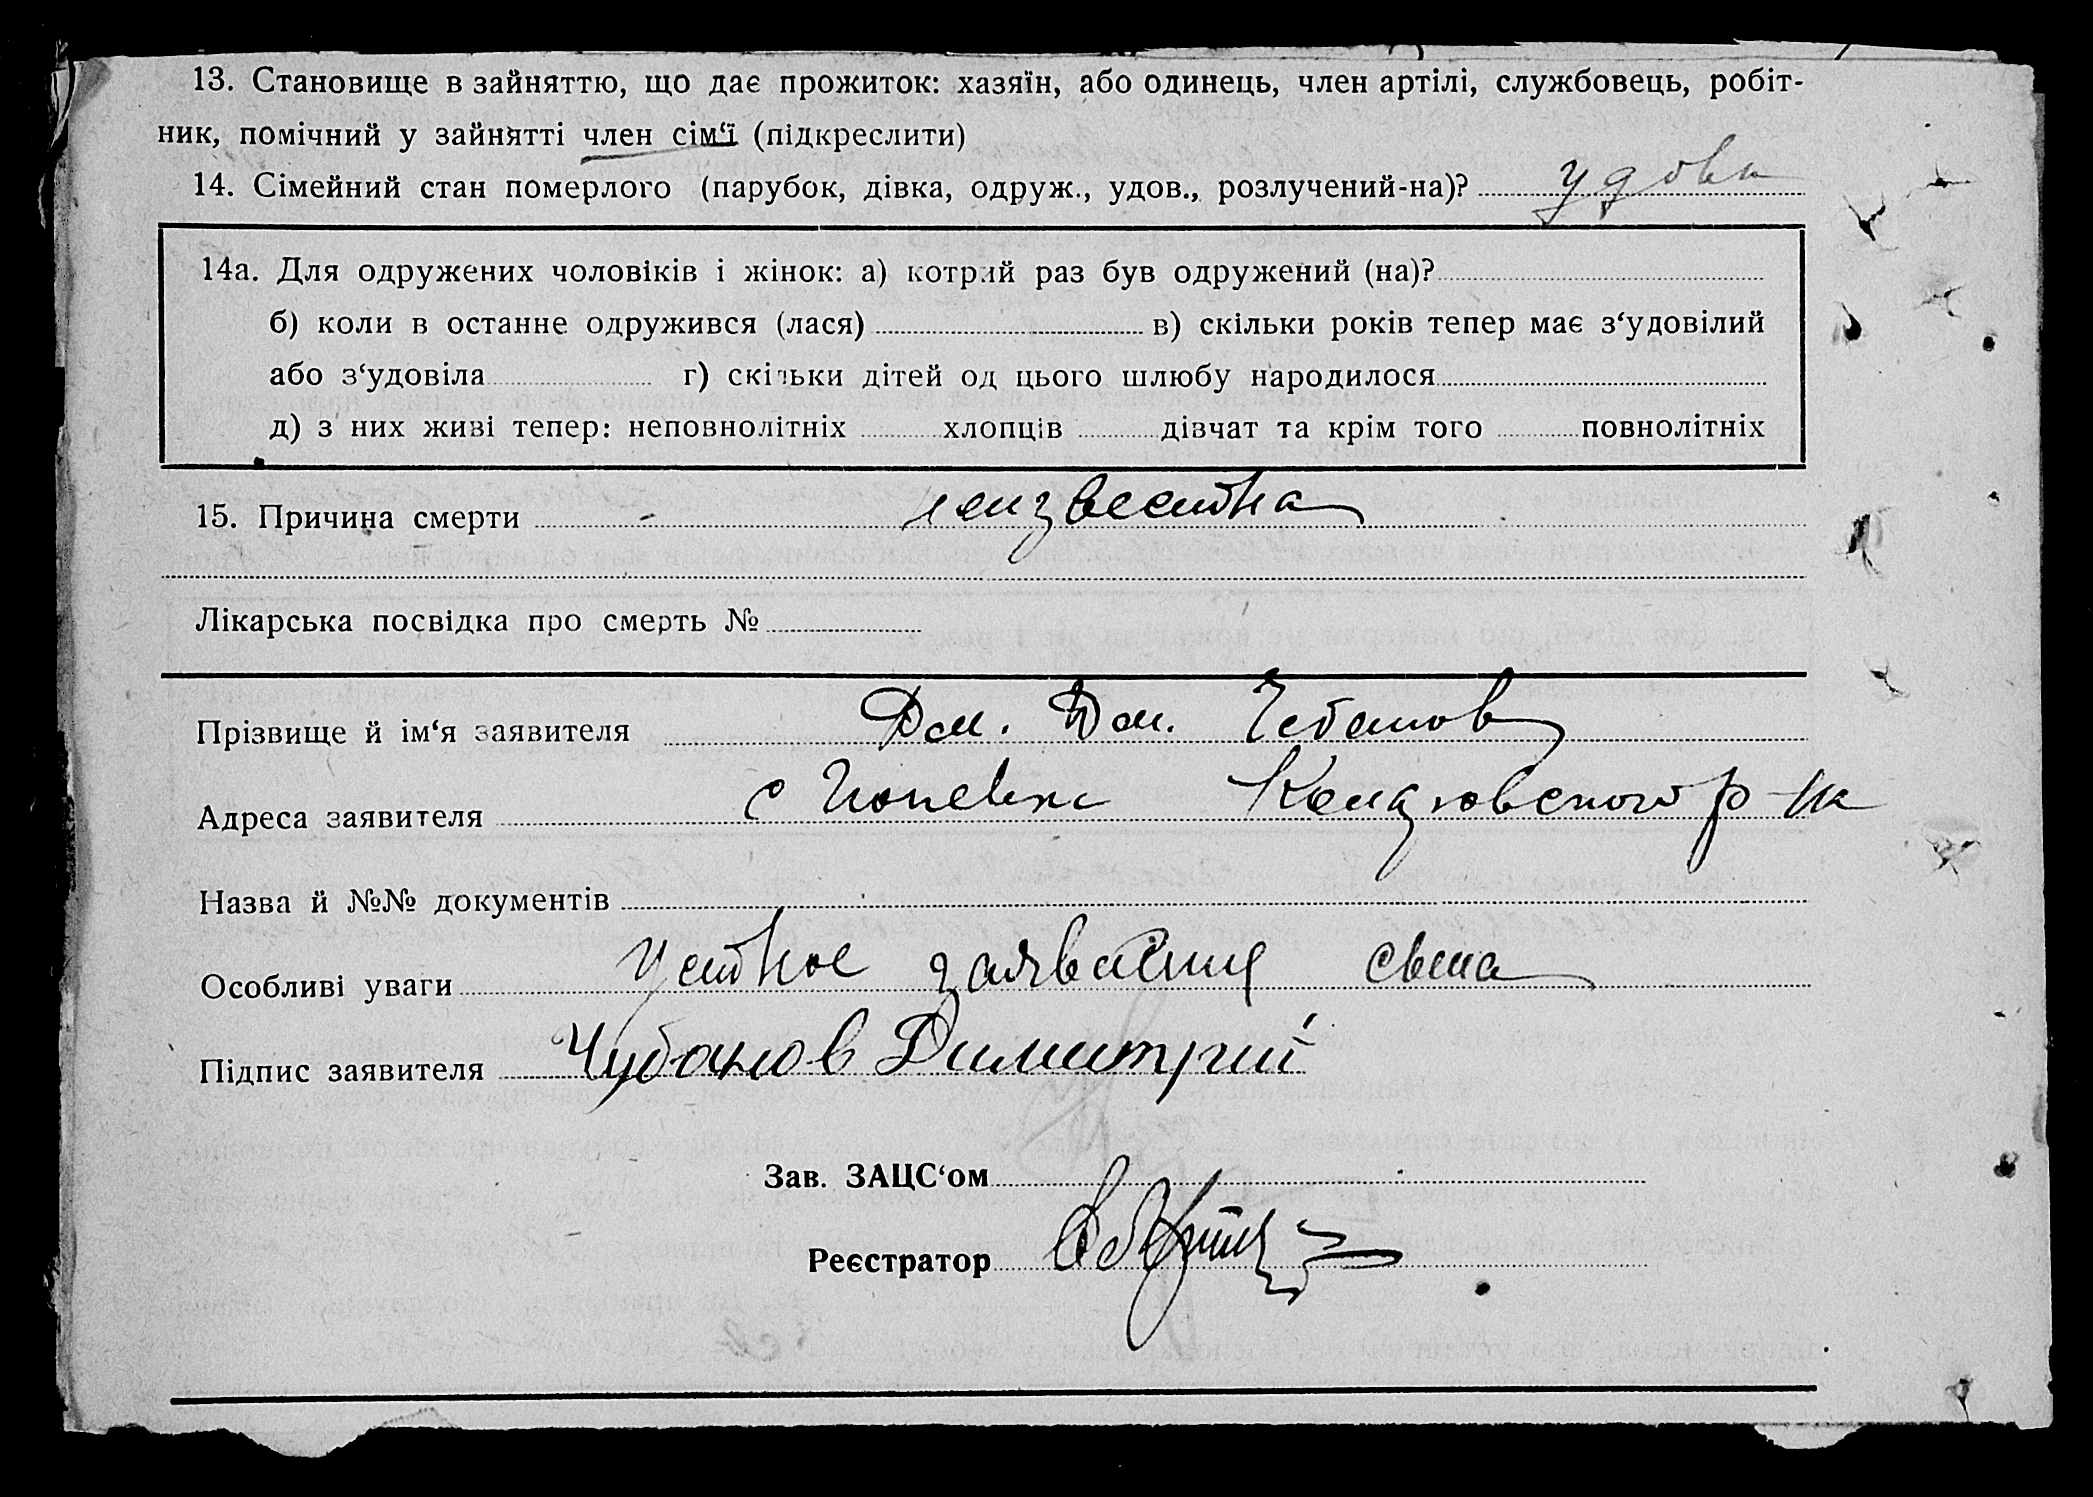 13. Становище в зайняттю, що дає прожиток: хазяїн, або одинець, член артілі, службовець, робіт-
ник, помічний у зайнятті член сім‘ї (підкреслити)
14. Сімейний стан померлого (парубок, дівка, одруж., удов., розлучений-на)? удова
14а. Для одружених чоловіків і жінок: а) котрий раз був одружений (на)?
б) коли в останне одружився (лася) в) скільки років тепер має з‘удовілий
або з‘удовіла г) скільки дітей од цього шлюбу народилося
д) з них живі тепер: неповнолітніх хлопців дівчат та крім того повнолітніх
15. Причина смерти неизвестна
Лікарська посвідка про смерть №
Прізвище й ім‘я заявителя Дм. Дм. Чебанов
Адреса заявителя с р-на
Назва й №№ документів
Особливі уваги Устное заявление сына
Підпис заявителя Чубанов Димитрий
Зав. ЗАЦС‘ом
Реєстратор